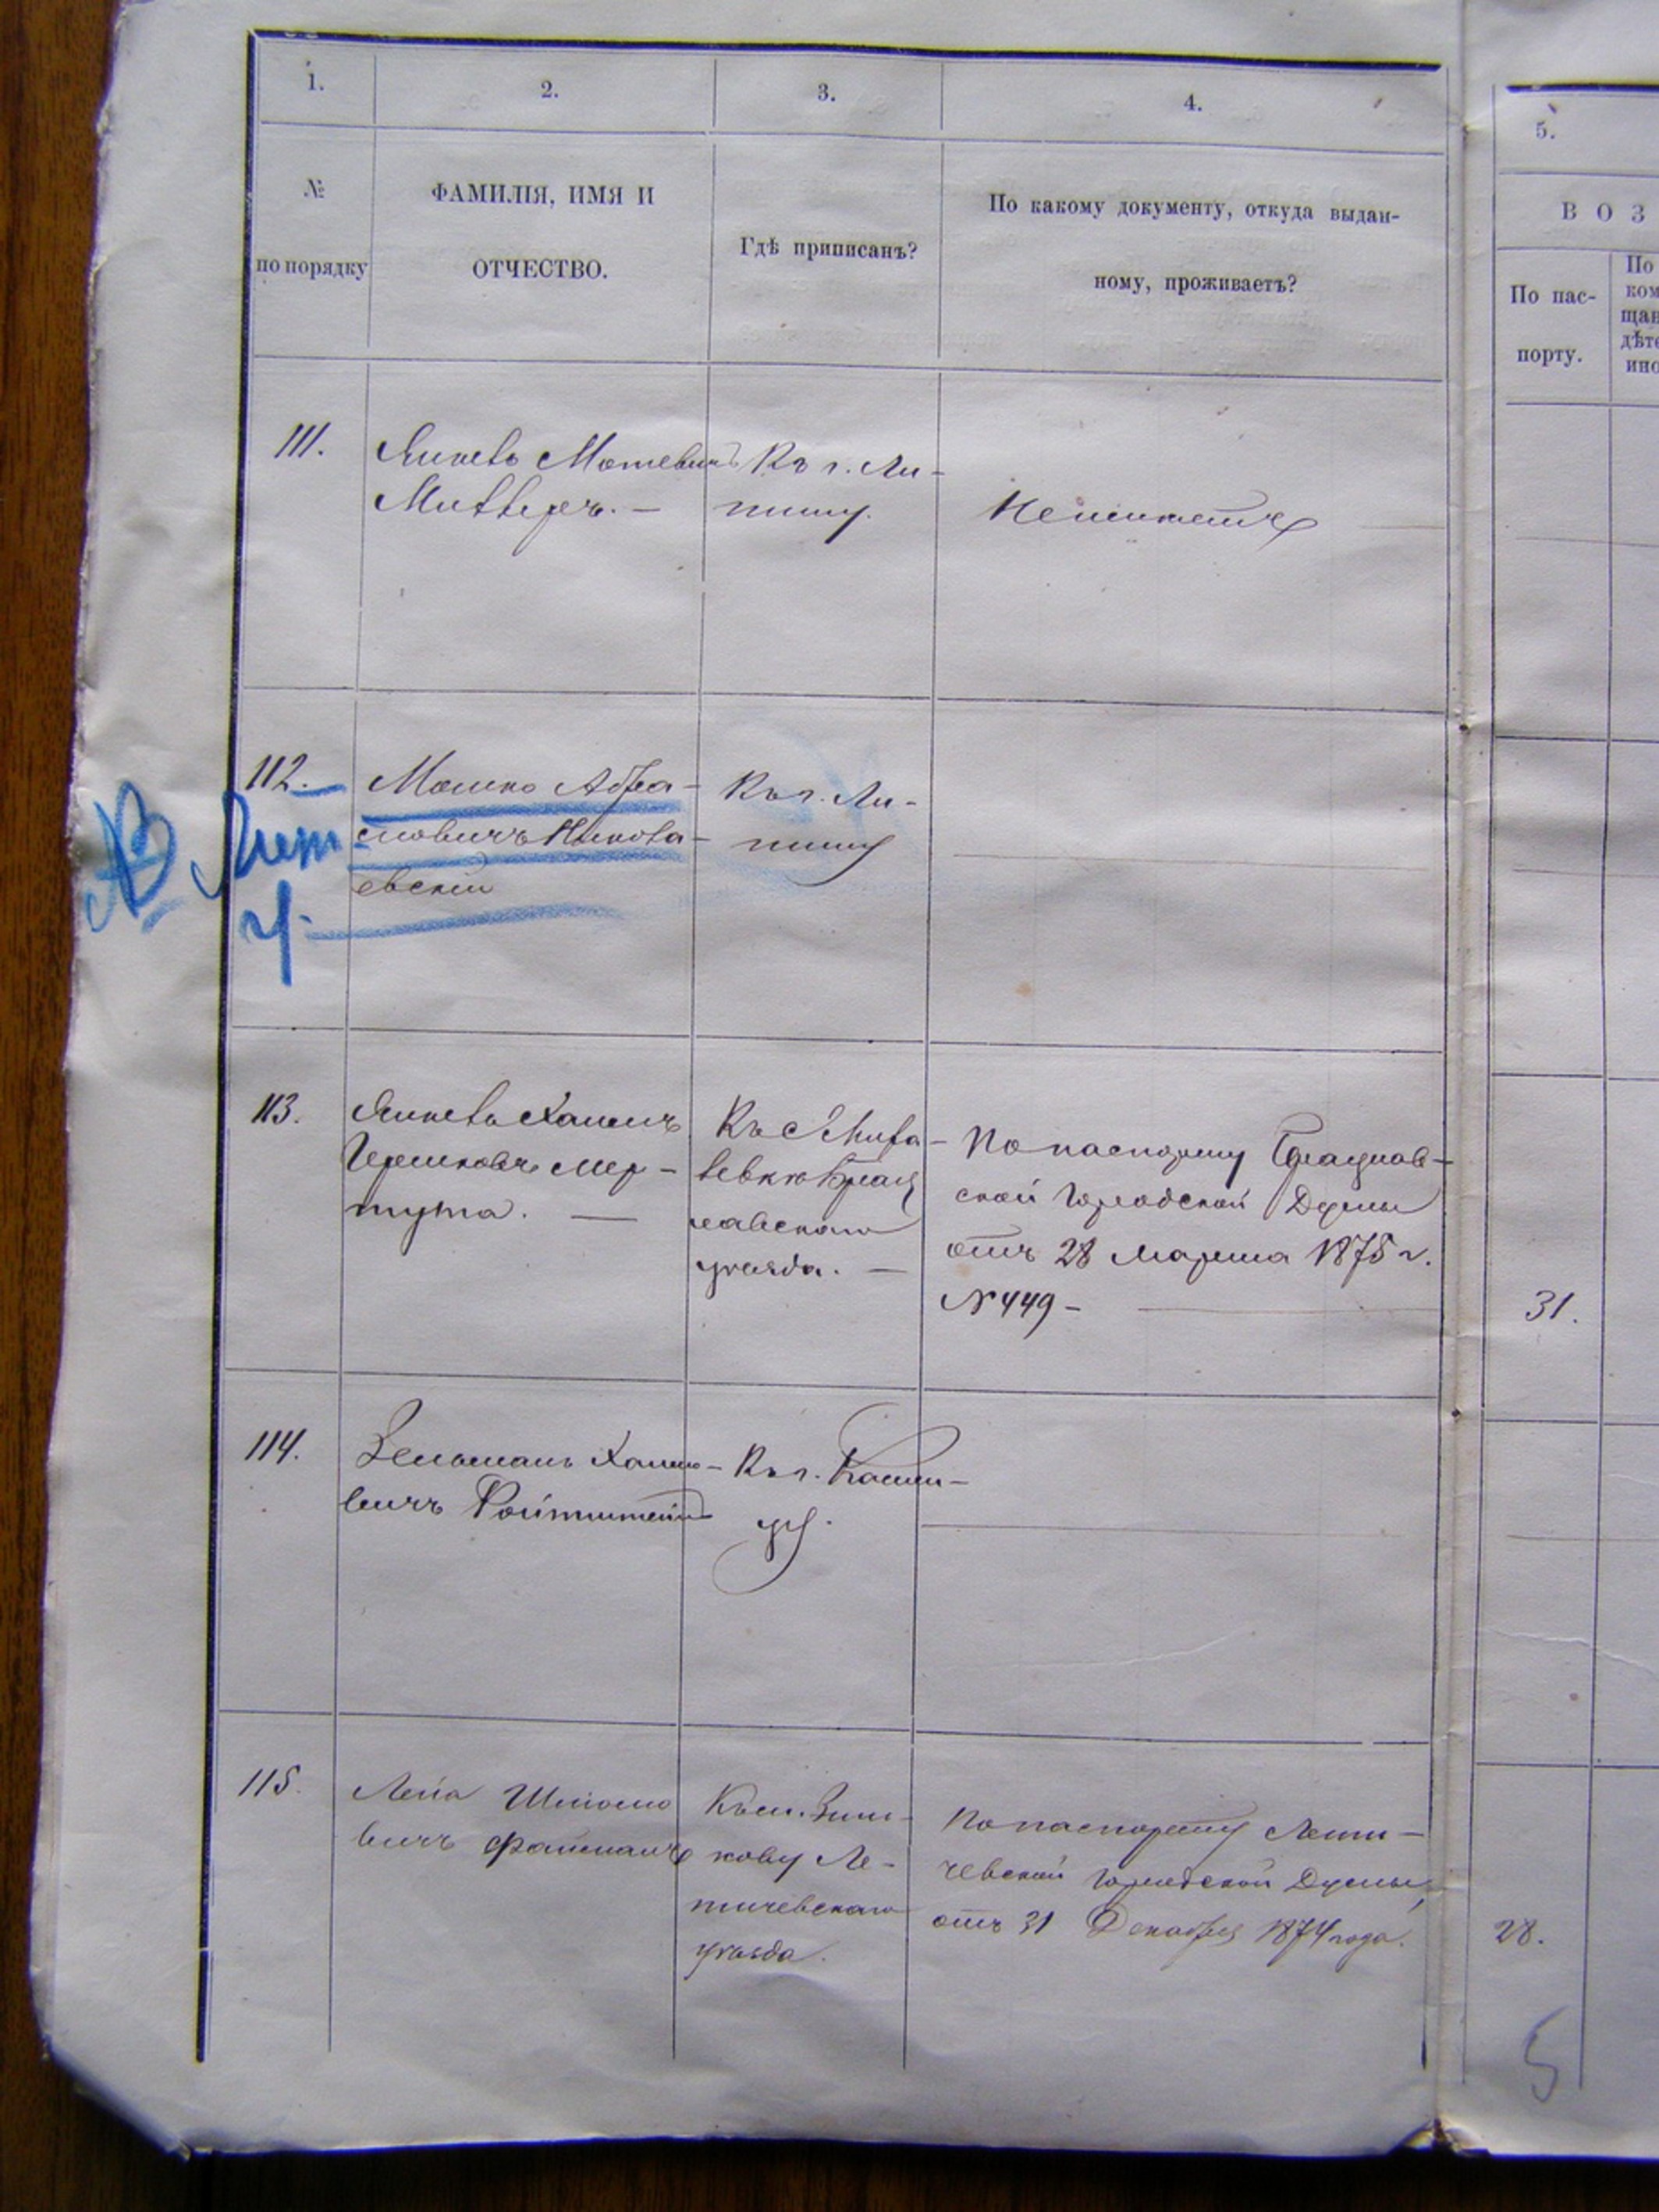 1.
2.
3.
4.
5.
№
по порядку
ФАМИЛІЯ, ИМЯ И
ОТЧЕСТВО.
Гдѣ приписанъ?
По какому документу, откуда выдан-
ному, проживаетъ?
ВОЗ
По пас-
порту.
По
ком
щан
дѣте
ино
111.
Янкевъ Мотевичъ
Къ г. Ли-
пцы.
112.
Мошко Абра-
мовичъ Никола-
евскій
Къ г. Ли-
113.
Янкевъ Хаимъ
Гершковъ Мер-
тута. —
Брац
лавскаго
уѣзда. —
По паспорту Брацлав-
ской Городской Думы
отъ 28 Марта 1875 г.
№ 449 -
31.
114.
Зельманъ Хаимо-
вичъ Ройтштейнъ
Къ г.
115.
Лейа Шліомо
вичъ Файнманъ
Къ м. Зинь-
кову Ле-
тичевскаго
уѣзда.
По паспорту Лети-
чевской Городской Думы
отъ 31 Декабря 1874 года.
28.
5